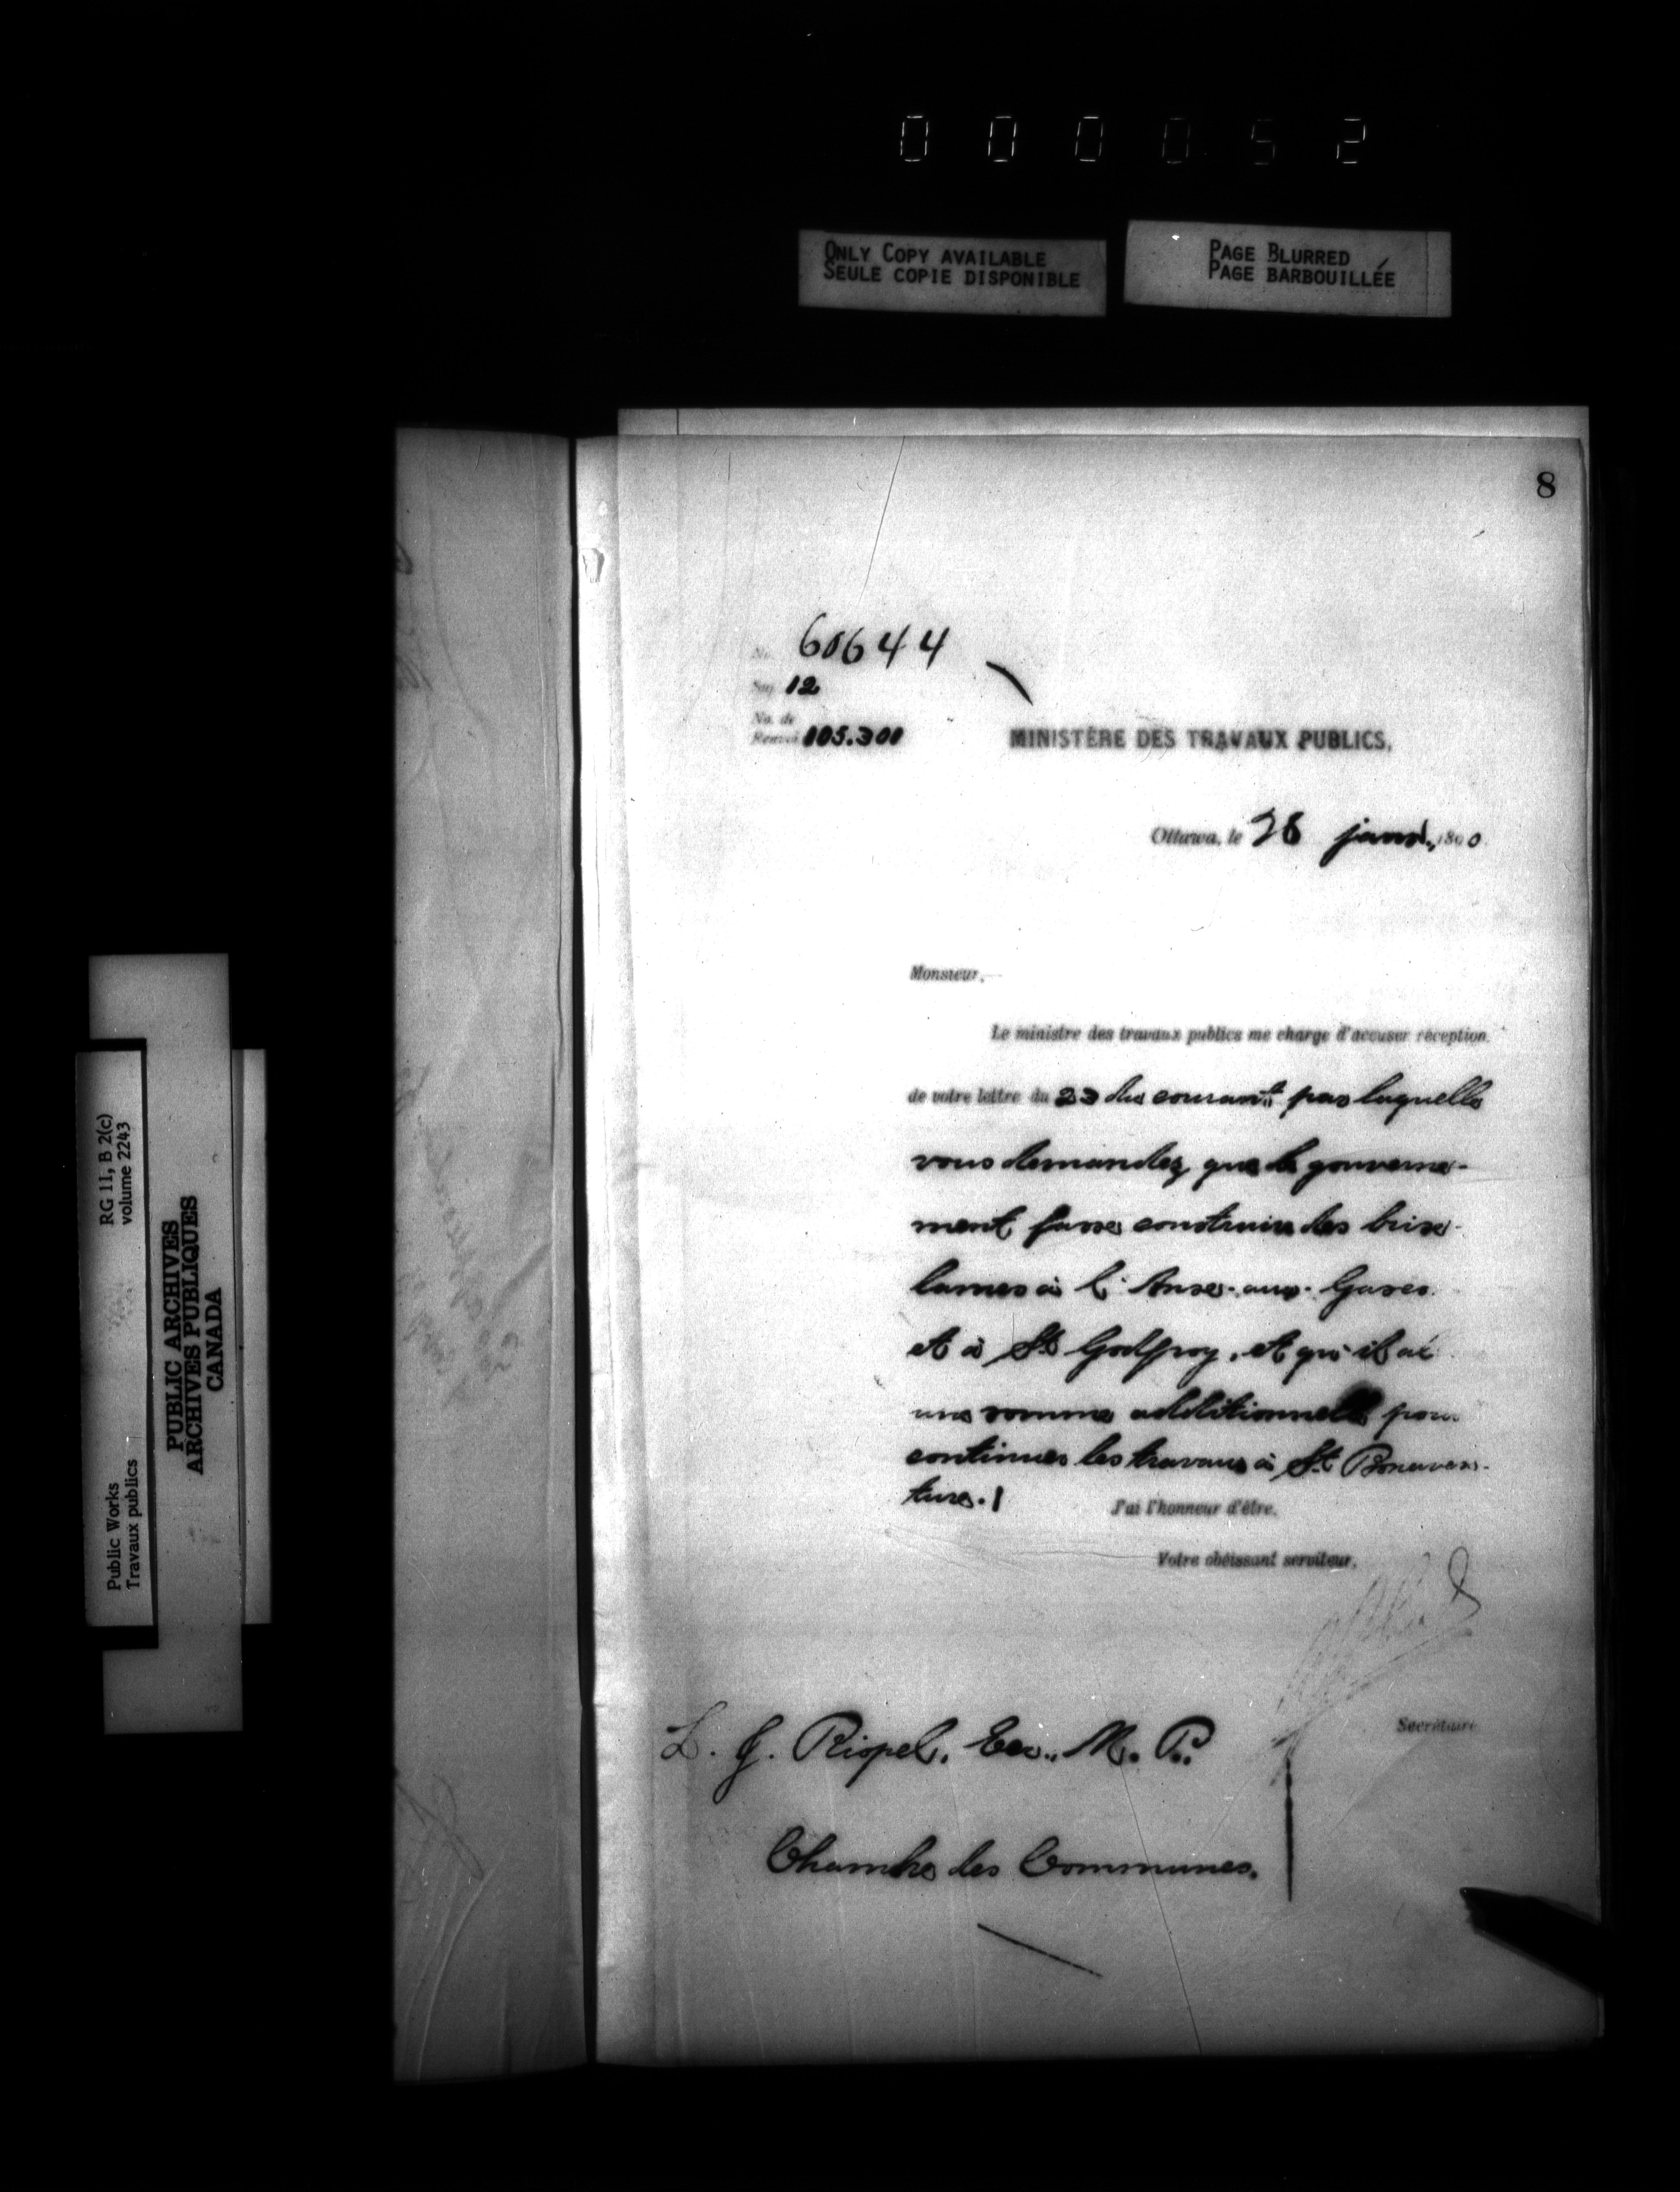 000052
ONLY COPY AVAILABLE
SEULE COPIE DISPONIBLE
PAGE BLURRED
PAGE BARBOUILLÉE
8
No. 60644
Suj. 12
No. de
Renvoi 105.301
MINISTÈRE DES TRAVAUX PUBLICS,
Ottawa, le 28 janv., 1890
Monsieur,
Le ministre des travaux publics me charge d'accuser réception
de votre lettre du 23 du courant par laquelle
vous demandez que le gouverne-
ment fasse construire des brise-
lames à l'Anse-aux-Gascs
et à St Godfroy, et qu'il al
une somme additionnelle pour
continuer les travaux à St Bonaven-
ture.
J'ai l'honneur d'être,
Votre obéissant serviteur,
Secrétaire
L. J. Riopel, Ecr., M. P.
Chambre des Communes.
RG 11, B 2(c)
volume 2243
Public Works
Travaux publics
PUBLIC ARCHIVES
ARCHIVES PUBLIQUES
CANADA